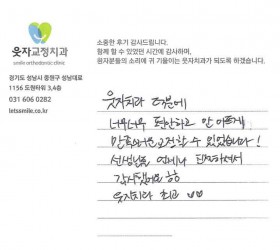 웃자교정치과
smile orthodontic clinic
경기도 성남시 중원구 성남대로
1156 도원타워 3,4층
031 606 0282
letssmile.co.kr
소중한 후기 감사드립니다.
함께 할 수 있었던 시간에 감사하며,
환자분들의 소리에 귀 기울이는 웃자치과가 되도록 하겠습니다.
웃자치과 덕분에
너무너무 편안하고 안 아프게
만족스러운 교정할 수 있었습니다!
선생님들 언제나 친절하셔서
감사했어요 ㅎㅎ
웃자치과 최고